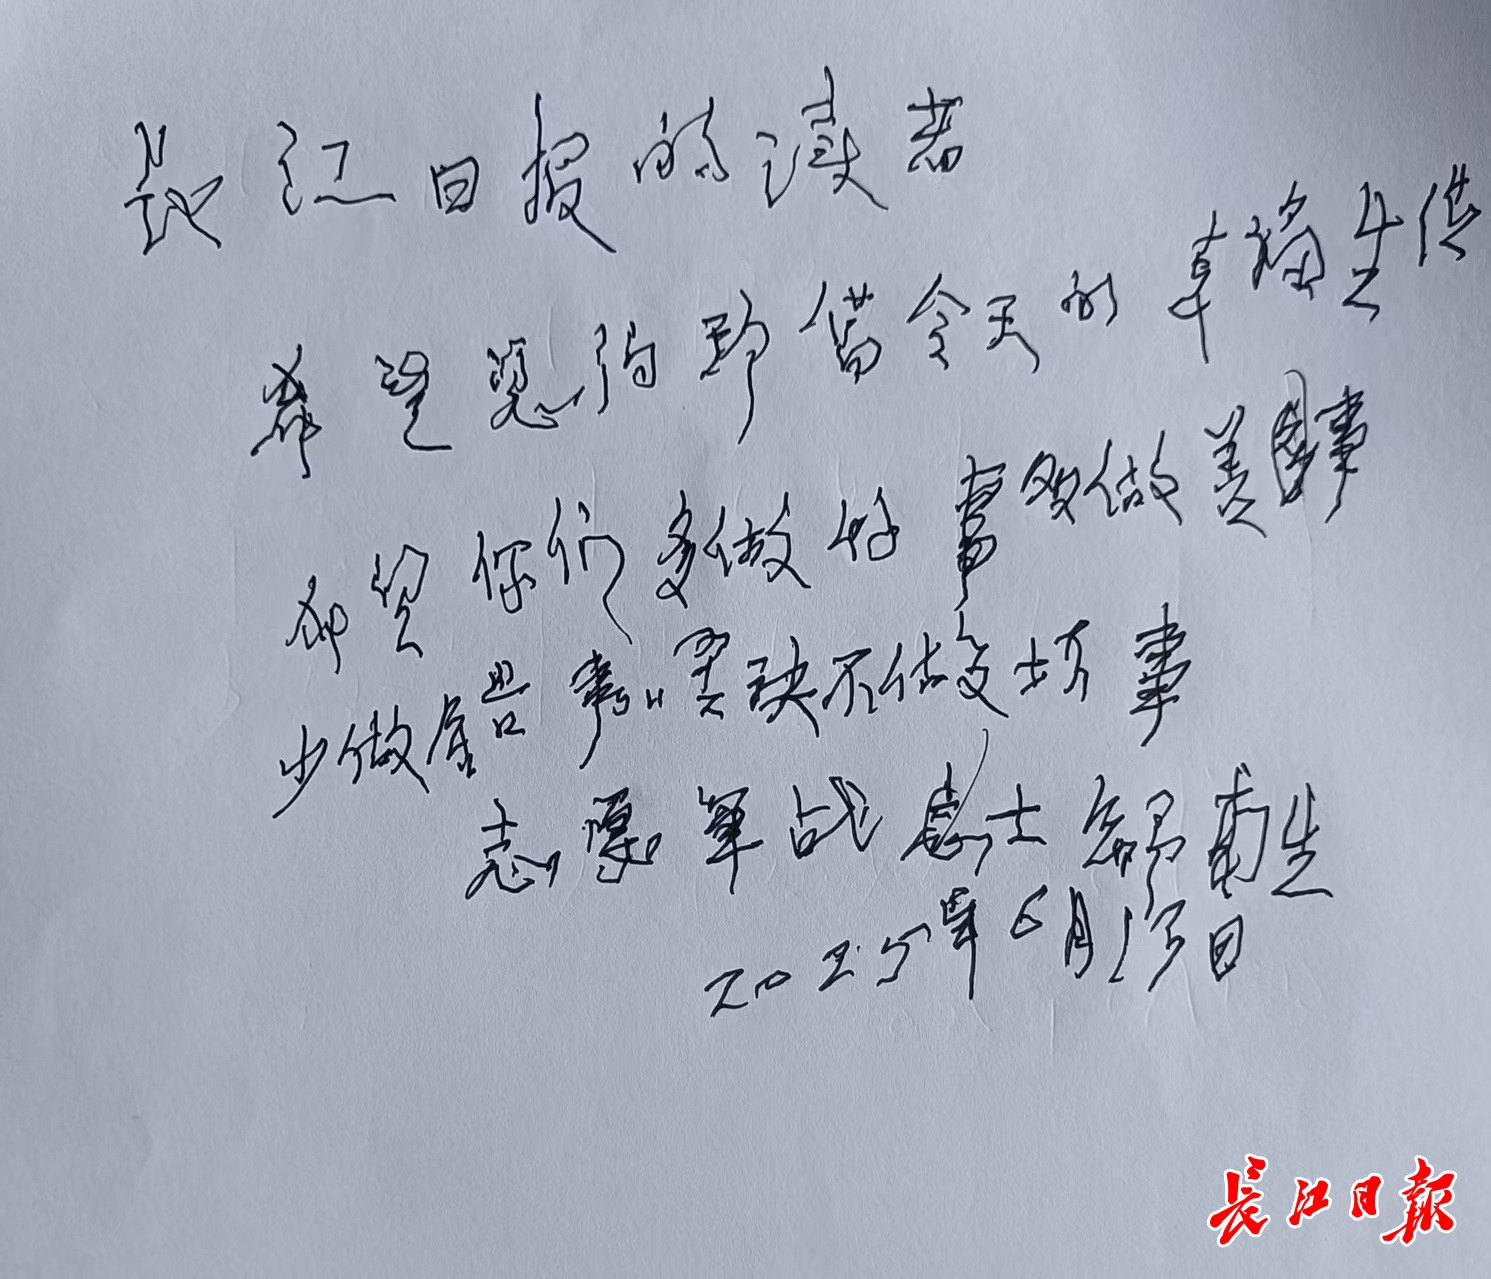 長江日报的读者
希望您的都借今天的幸福生活
希望你们多做好事多做美事
少做錯事坚决不做坏事
志愿军战士舒南生
2025年6月13日
長江日報